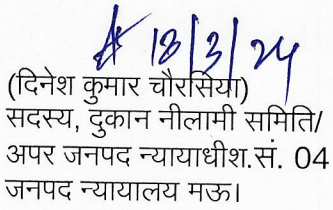 18/3/24
(दिनेश कुमार चौरसिया)
सदस्य, दुकान नीलामी समिति/
अपर जनपद न्यायाधीश.सं. 04
जनपद न्यायालय मऊ।